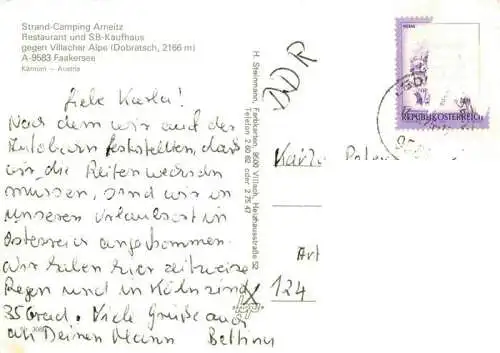 Strand-Camping Arneitz
Restaurant und SB-Kaufhaus
gegen Villacher Alpe (Dobratsch, 2166 m)
A-9583 Faakersee
Kärnten – Austria
Liebe Karla!
Nach dem wir auf der
Autobahn feststellten, das
wir die Reifen wechseln
mussen, sind wir in
unseren Urlaubsort in
Österreich angekommen.
Wir haben hier zeitweise
Regen und in Köln sind
35 Grad. Viele Grüße auch
an Deinen Mann Bettina
H. Steinmann, Farbkarten, 9500 Villach, Heizhausstraße 52
Telefon 2 60 82 oder 2 75 47
DDR
REPUBLIK ÖSTERREICH
Art
124